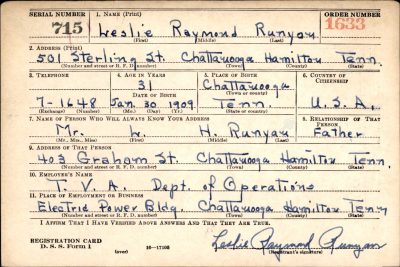 SERIAL NUMBER 1. NAME (Print) ORDER NUMBER
715 Leslie Raymond Runyan 1633
(First) (Middle) (Last)
2. ADDRESS (Print)
501 Sterling St. Chattanooga Hamilton Tenn.
(Number and street or R. F. D. number) (Town) (County) (State)
3. TELEPHONE 4. AGE IN YEARS 5. PLACE OF BIRTH 6. COUNTRY OF CITIZENSHIP
31 Chattanooga
DATE OF BIRTH (Town or county)
7-1648 Jan. 30 1909 Tenn. U.S.A.
(Exchange) (No.) (Mo.) (Day) (Yr.) (State or country)
7. NAME OF PERSON WHO WILL ALWAYS KNOW YOUR ADDRESS 8. RELATIONSHIP OF THAT PERSON
Mr. L. H. Runyan Father
(Mr., Mrs., Miss) (First) (Middle) (Last)
9. ADDRESS OF THAT PERSON
403 Graham St. Chattanooga Hamilton Tenn.
(Number and street or R. F. D. number) (Town) (County) (State)
10. EMPLOYER'S NAME
T. V. A. Dept. of Operations
11. PLACE OF EMPLOYMENT OR BUSINESS
Electric Power Bldg. Chattanooga Hamilton Tenn
(Number and street or R. F. D. number) (Town) (County) (State)
I AFFIRM THAT I HAVE VERIFIED ABOVE ANSWERS AND THAT THEY ARE TRUE.
REGISTRATION CARD
D. S. S. Form 1 (over) 16-17105
Leslie Raymond Runyan
(Registrant's signature)